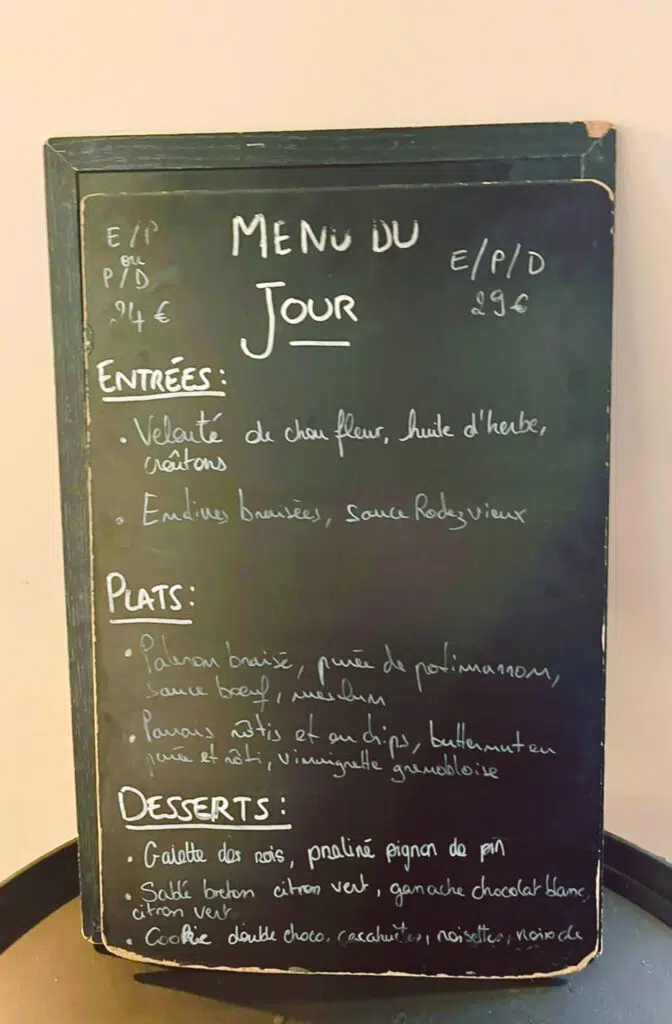 E/P
ou
P/D
24 €
MENU DU
JOUR
E/P/D
29 €
ENTRÉES :
• Velouté de chou fleur, huile d'herbe,
croûtons
• Endives braisées, sauce Rodez vieux
PLATS :
• Paleron braisé, purée de potimarron,
sauce bœuf, mesclun
• Panais rôtis et en chips, butternut en
purée et rôti, vinaigrette grenobloise
DESSERTS :
• Galette des rois, praliné pignon de pin
• Sablé breton citron vert, ganache chocolat blanc,
citron vert
• Cookie double choco, cacahuètes, noisettes, noix de